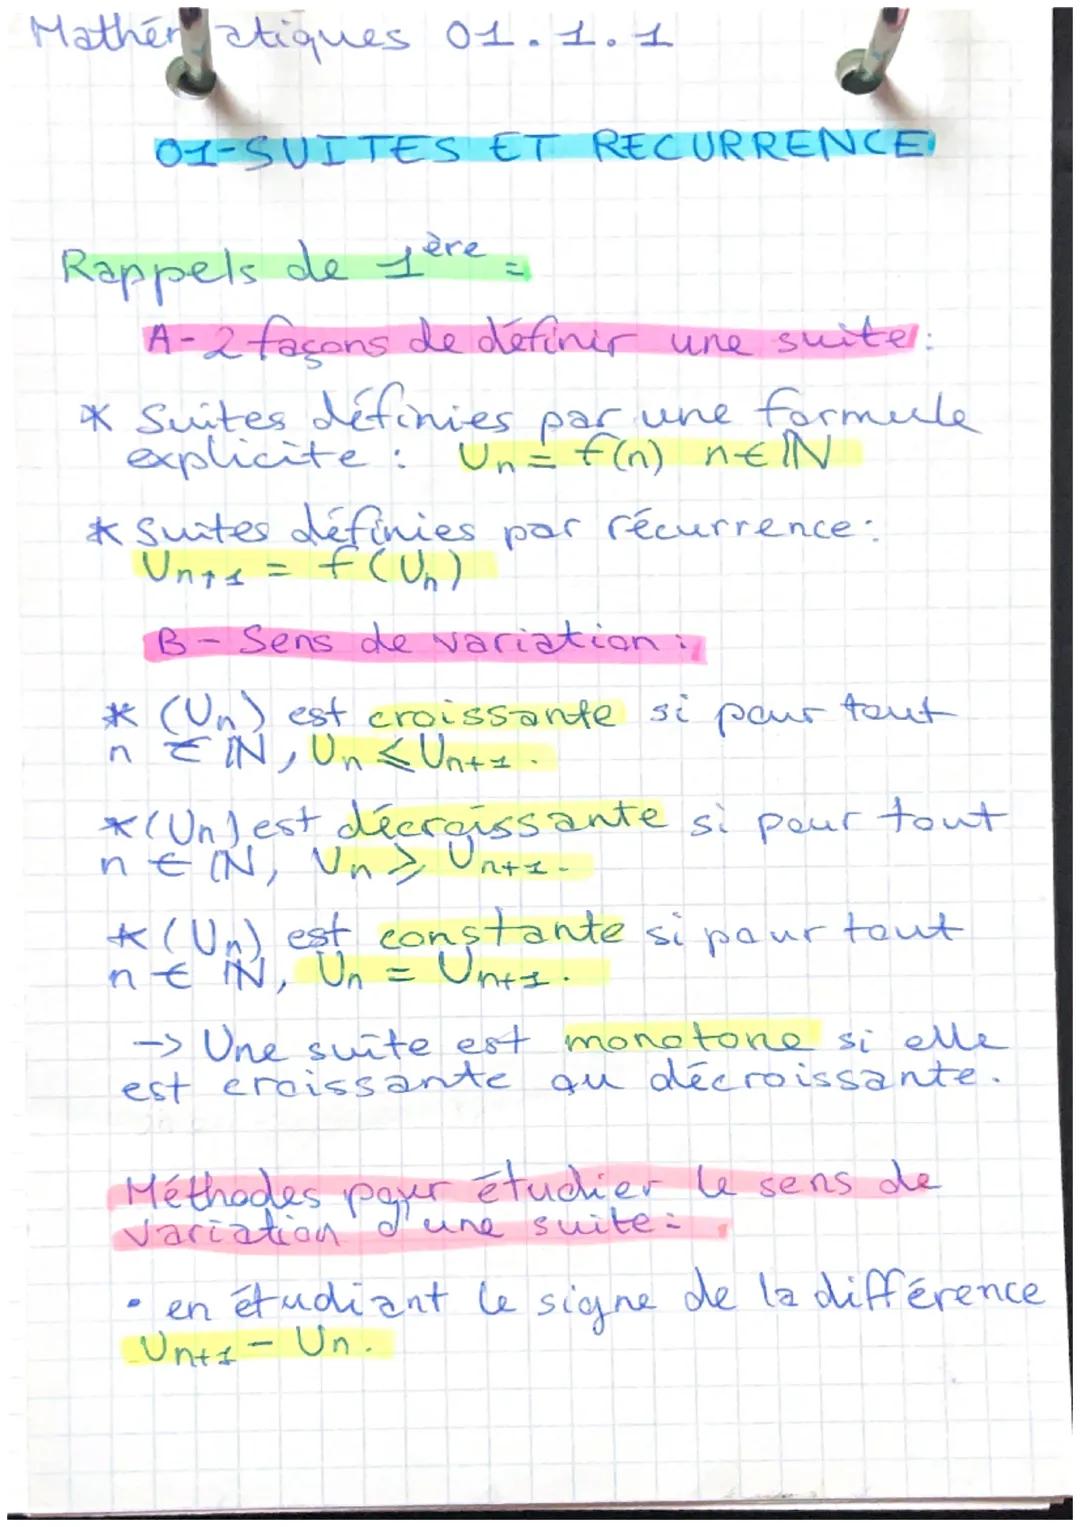 Mathém atiques 01.1.1
01-SUITES ET RECURRENCE
Rappels de 1ère :
A-2 façons de définir une suite :
* Suites définies par une formule
explicite : Un = f(n) n ∈ ℕ
* Suites définies par récurrence :
Un+1 = f(Un)
B - Sens de variation :
* (Un) est croissante si pour tout
n ∈ ℕ, Un ⩽ Un+1.
* (Un) est décroissante si pour tout
n ∈ ℕ, Un ⩾ Un+1.
* (Un) est constante si pour tout
n ∈ ℕ, Un = Un+1.
-> Une suite est monotone si elle
est croissante ou décroissante.
Méthodes pour étudier le sens de
variation d'une suite :
• en étudiant le signe de la différence
Un+1 - Un.